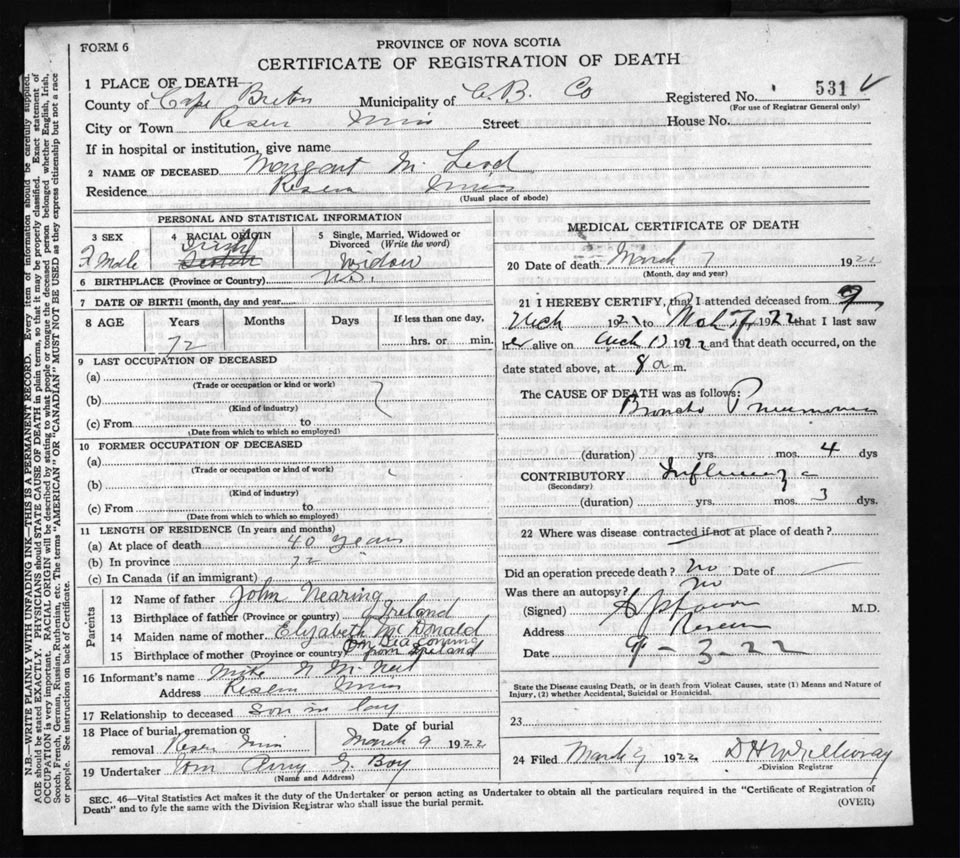 FORM 6
PROVINCE OF NOVA SCOTIA
CERTIFICATE OF REGISTRATION OF DEATH
1 PLACE OF DEATH
County of Cape Breton Municipality of C. B. Co Registered No. 531
(For use of Registrar General only)
City or Town Street House No.
If in hospital or institution, give name
2 NAME OF DECEASED Margaret Mc Leod
Residence
(Usual place of abode)
PERSONAL AND STATISTICAL INFORMATION
3 SEX
4 RACIAL ORIGIN
5 Single, Married, Widowed or Divorced (Write the word)
Irish
Scotch
Widow
6 BIRTHPLACE (Province or Country) N.S.
7 DATE OF BIRTH (month, day and year)
8 AGE Years Months Days If less than one day,
72 hrs. or min.
9 LAST OCCUPATION OF DECEASED
(a)
(Trade or occupation or kind or work)
(b)
(Kind of industry)
(c) From to
(Date from which to which so employed)
10 FORMER OCCUPATION OF DECEASED
(a)
(Trade or occupation or kind of work)
(b)
(Kind of industry)
(c) From to
(Date from which to which so employed)
11 LENGTH OF RESIDENCE (In years and months)
(a) At place of death 40 years
(b) In province 72
(c) In Canada (if an immigrant)
Parents
12 Name of father John Nearing
13 Birthplace of father (Province or country) Ireland
14 Maiden name of mother Elizabeth Mc Donald
15 Birthplace of mother (Province or country) On Sea coming from Ireland
16 Informant's name Mike Mc Neil
Address
17 Relationship to deceased Son in law
18 Place of burial, cremation or removal
Date of burial
March 9 1922
19 Undertaker Tom
(Name and Address)
MEDICAL CERTIFICATE OF DEATH
20 Date of death March 7 1922
(Month, day and year)
21 I HEREBY CERTIFY, that I attended deceased from
192 to 1922 that I last saw
her alive on 1922 and that death occurred, on the
date stated above, at 8 a m.
The CAUSE OF DEATH was as follows:
Broncho Pneumonia
(duration) yrs. mos. 4 dys
CONTRIBUTORY Influenza
(Secondary)
(duration) yrs. mos. 3 dys.
22 Where was disease contracted if not at place of death?
Did an operation precede death? no Date of
Was there an autopsy? no
(Signed) M.D.
Address
Date 9-3-22
State the Disease causing Death, or in death from Violent Causes, state (1) Means and Nature of Injury, (2) whether Accidental, Suicidal or Homicidal.
23
24 Filed March 9 1922
Division Registrar
SEC. 46—Vital Statistics Act makes it the duty of the Undertaker or person acting as Undertaker to obtain all the particulars required in the "Certificate of Registration of
Death" and to fyle the same with the Division Registrar who shall issue the burial permit.
(OVER)
N.B.—WRITE PLAINLY WITH UNFADING INK—THIS IS A PERMANENT RECORD. Every item of information should be carefully supplied.
AGE should be stated EXACTLY. PHYSICIANS should STATE CAUSE OF DEATH in plain terms, so that it may be properly classified. Exact statement of
OCCUPATION is very important. RACIAL ORIGIN will be described by stating to what people or tongue the deceased person belonged whether English, Irish,
Scotch, French, German, Russian, Ruthenian, etc. The terms "AMERICAN" OR "CANADIAN" MUST NOT BE USED as they express citizenship but not a race
or people. See instructions on back of Certificate.